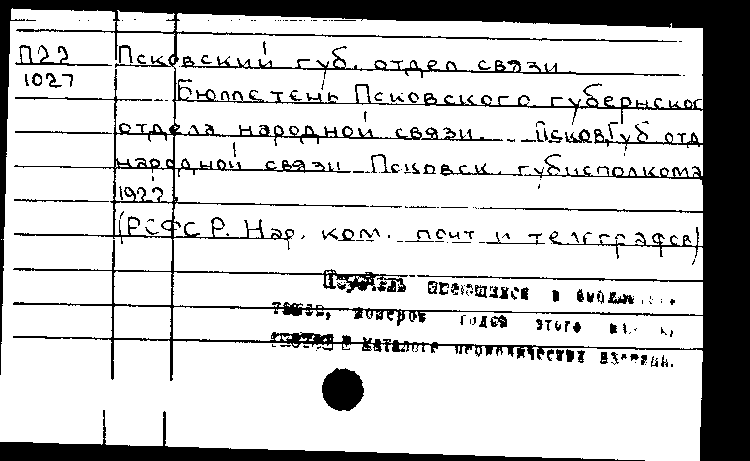 П22 Псковский губ. отдел связи
1027 Бюллетень Псковского губернског
отдела народной связи. Псков, Губ отд
народной связи Псковск. губисполкома
1922.
(РСФСР. Нар. ком. почт и телеграфов)
имеющихся в
томов, номеров годов этого
в каталоге периодических изданий.